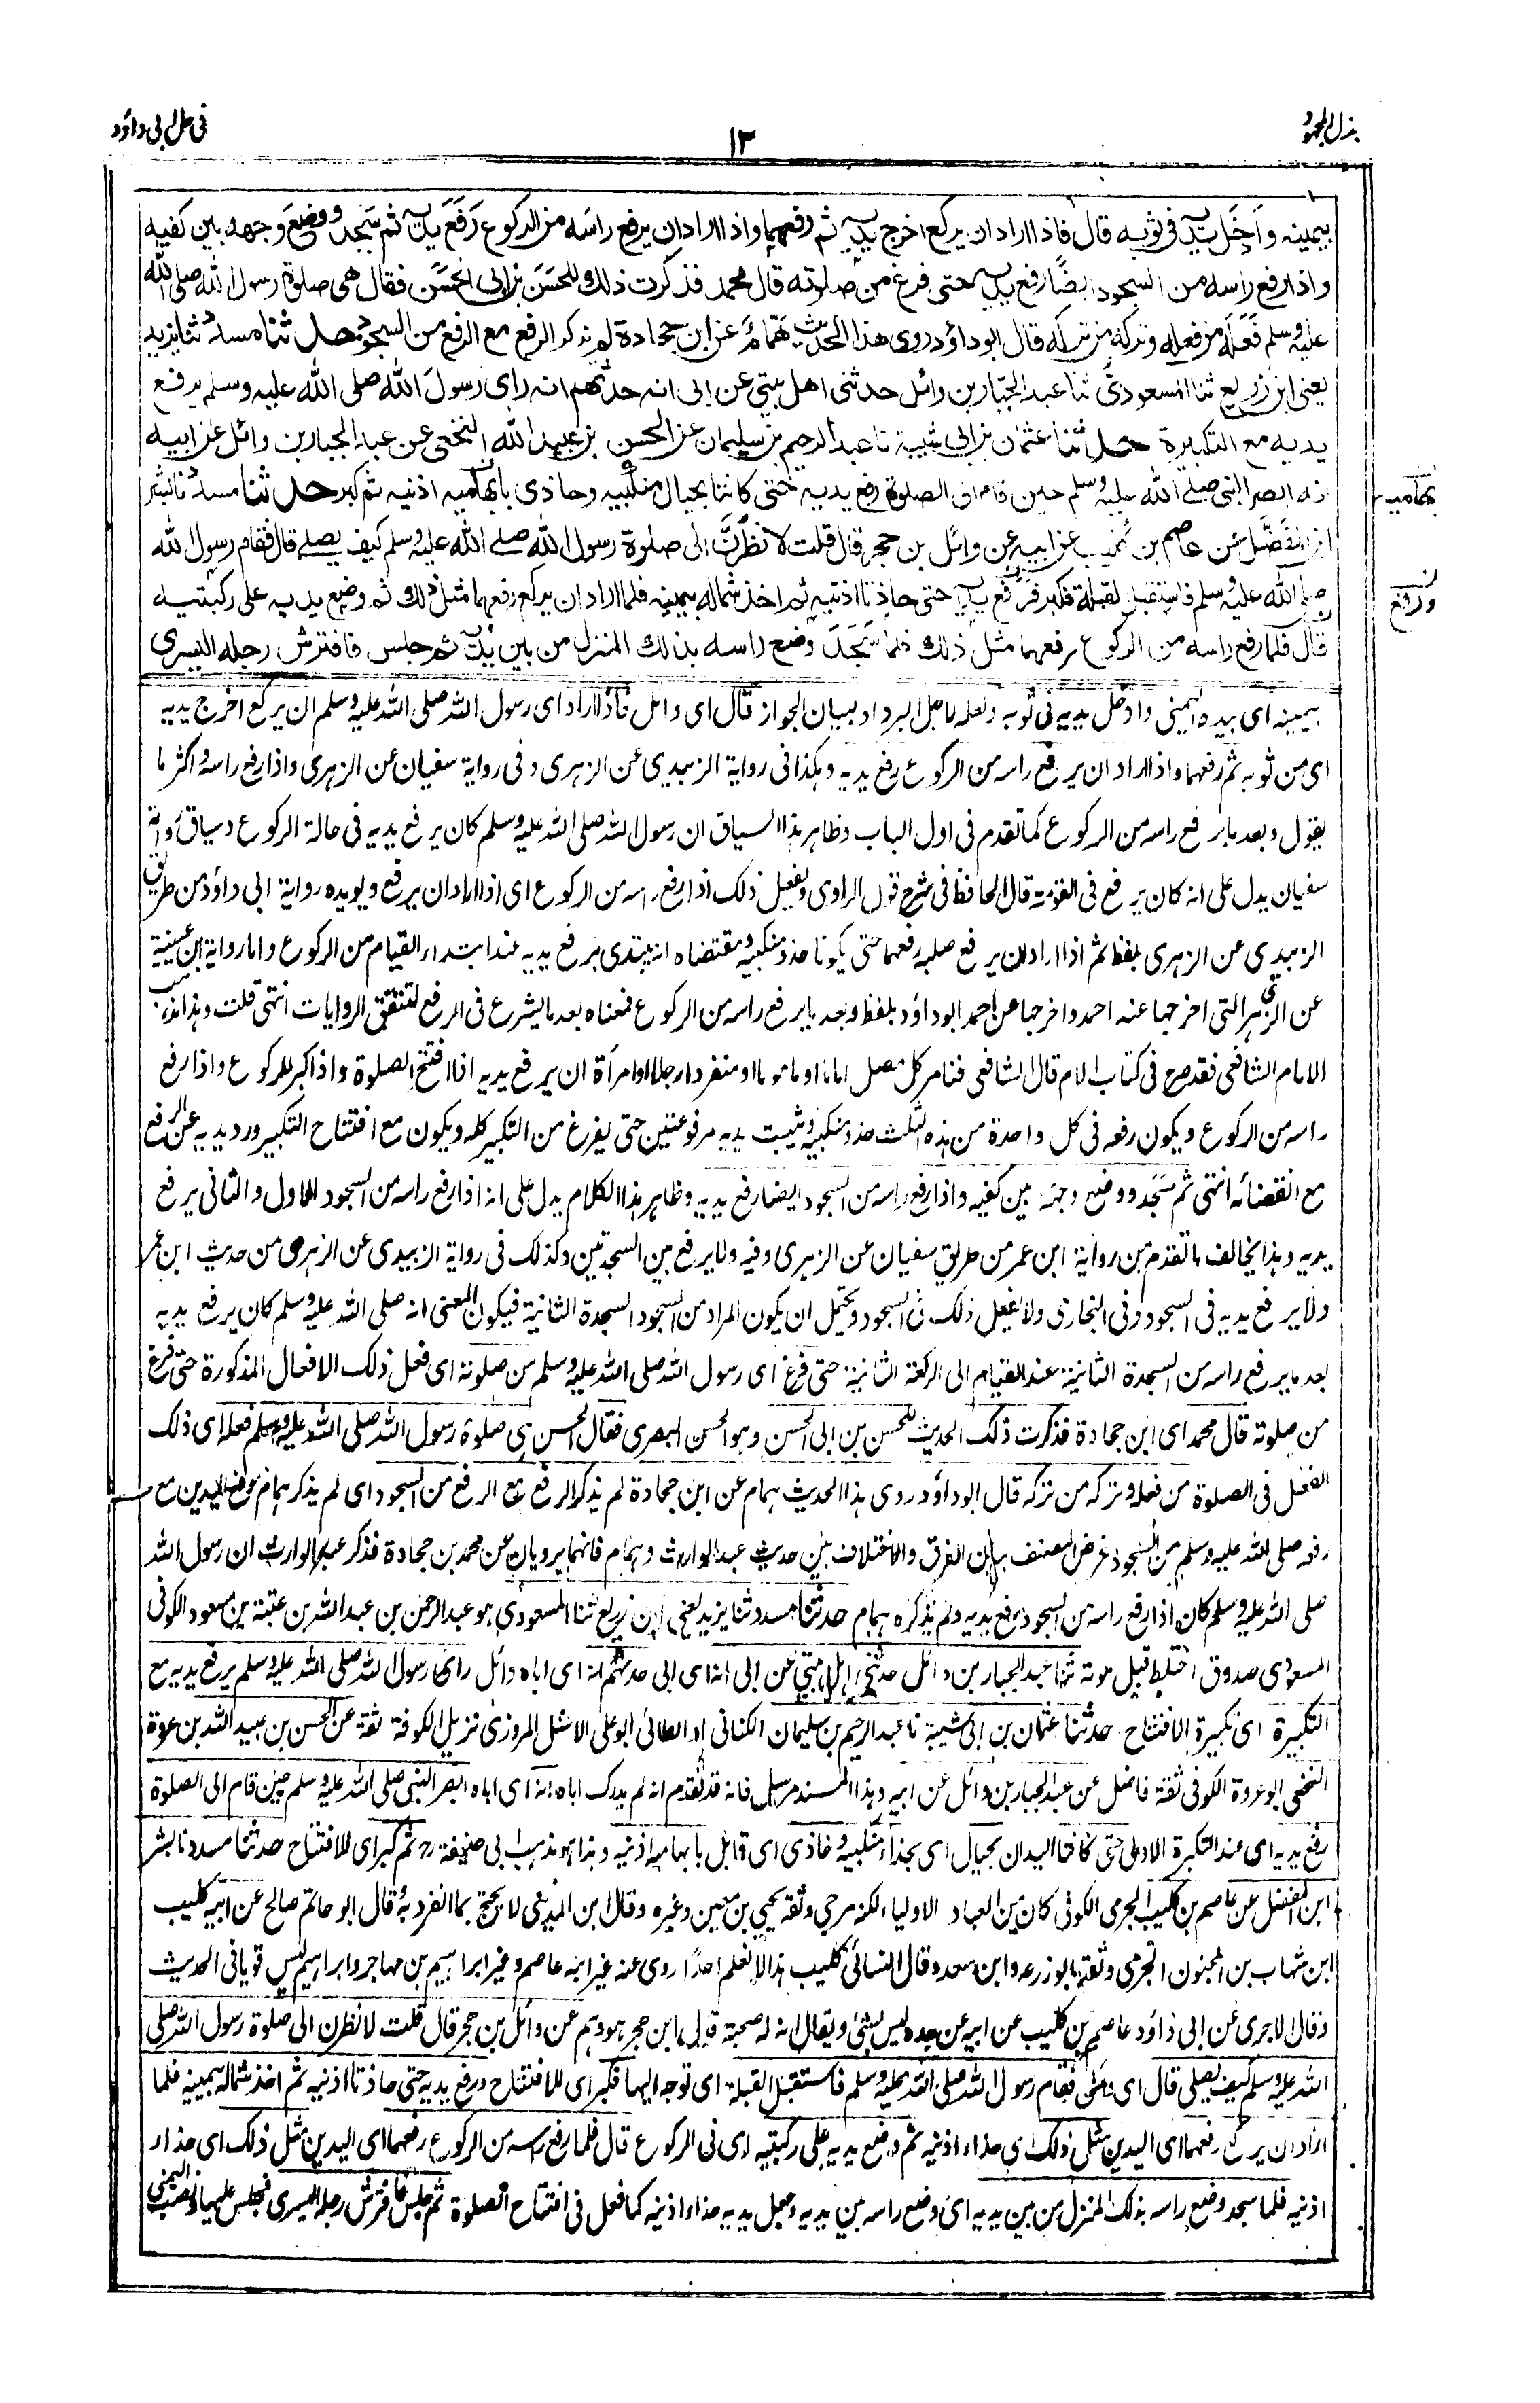 بذل المجهود
١٣
فی حل ابی داؤد
بیمینه واَدخَل یدیه فی ثوبه قال فاذا اراد ان یرکع اخرج یدیه ثم رفعهما واذا اراد ان یرفع راسَه من الرکوع رَفَعَ یدیه ثم سَجَد ووضعَ وجهه بین کفیه
واذا رفع راسه من السجود ایضًا رفع یدیه حتی فرغ من صلوته قال محمد فذکرت ذلك للحسَن بن ابی الحَسَن فقال هی صلوة رسول الله صلی الله
علیه وسلم فَعَلَه من فعله وترکه من ترکه قال ابو داؤد روی هذا الحدیث همّام عن ابن جحادة لم یذکر الرفع مع الرفع من السجود حدثنا مسدد ثنا یزید
یعنی ابن زریع ثنا المسعودی ثنا عبد الجبّار بن وائل حدثنی اهل بیتی عن ابی انه حدثهم انه رای رسولَ الله صلی الله علیه وسلم یرفع
یدیه مع التکبیرة حدثنا عثمان بن ابی شیبة نا عبد الرحیم بن سلیمان عن الحسن بن عبید الله النخعی عن عبد الجبار بن وائل عن ابیه
انه ابصر النبی صلے الله علیه وسلم حین قام الی الصلوة رفع یدیه حتی کانتا بحیال منکبیه وحاذی بابهامیه اذنیه ثم کبر حدثنا مسدد نا بشر
بن المفضَّل عن عاصم بن کلیب عن ابیه عن وائل بن حجر قال قلت لانظرنَّ الی صلوة رسول الله صلے الله علیه وسلم کیف یصلے قال فقام رسول الله
صلی الله علیه وسلم فاستقبل القبلة فکبر فرفع یدیه حتی حاذتا اذنیه ثم اخذ شماله بیمینه فلما اراد ان یرکع رفعهما مثل ذلك ثم وضع یدیه علی رکبتیه
قال فلما رفع راسه من الرکوع رفعهما مثل ذلك فلما سَجَدَ وضع راسه بذلك المنزل من بین یدیه ثم جلس فافترش رجله الیسری
ورفع
بیمینه ای بیده الیمنی وادخل یدیه فی ثوبه ولعله لاجل البرد او لبیان الجواز قال ای وائل فاذا اراد ای رسول الله صلی الله علیه وسلم ان یرکع اخرج یدیه
ای من ثوبه ثم رفعهما واذا اراد ان یرفع راسه من الرکوع رفع یدیه وهکذا فی روایة الزبیدی عن الزهری وفی روایة سفیان عن الزهری واذا رفع راسه واکثر ما
یقول وبعد ما یرفع راسه من الرکوع کما تقدم فی اول الباب وظاهر هذا السیاق ان رسول الله صلی الله علیه وسلم کان یرفع یدیه فی حالة الرکوع وسیاق روایة
سفیان یدل علی انه کان یرفع فی القومة قال الحافظ فی شرح قول الراوی ویفعل ذلک اذا رفع راسه من الرکوع ای اذا اراد ان یرفع ویویده روایة ابی داؤد من طریق
الزبیدی عن الزهری بلفظ ثم اذا اراد ان یرفع صلبه رفعهما حتی یکونا حذو منکبیه ومقتضاه انه یبتدی برفع یدیه عند ابتداء القیام من الرکوع واما روایة ابن عیینة
عن الزهری التی اخرجها عنه احمد واخرجها عن احمد ابو داؤد بلفظ وبعد ما یرفع راسه من الرکوع فمعناه بعد ما یشرع فی الرفع لتتفق الروایات انتهی قلت وهذا مذهب
الامام الشافعی فقد صرح فی کتاب الام قال الشافعی فنامر کل مصل اماما او ماموما او منفردا رجلا او امرأة ان یرفع یدیه اذا افتتح الصلوة واذا کبر للرکوع واذا رفع
راسه من الرکوع ویکون رفعه فی کل واحدة من هذه الثلث حذو منکبیه ویثبت یدیه مرفوعتین حتی یفرغ من التکبیر کله ویکون مع افتتاح التکبیر ورد یدیه عن الرفع
مع انقضائه انتهی ثم سجد ووضع وجهه بین کفیه واذا رفع راسه من السجود ایضا رفع یدیه وظاهر هذا الکلام یدل علی انه اذا رفع راسه من السجود الاول والثانی یرفع
یدیه وهذا یخالف ما تقدم من روایة ابن عمر من طریق سفیان عن الزهری وفیه ولا یرفع بین السجدتین وکذلک فی روایة الزبیدی عن الزهری من حدیث ابن عمر
ولا یرفع یدیه فی السجود وفی البخاری ولا یفعل ذلک فی السجود ویحتمل ان یکون المراد من السجود السجدة الثانیة فیکون المعنی انه صلی الله علیه وسلم کان یرفع یدیه
بعد ما یرفع راسه من السجدة الثانیة عند القیام الی الرکعة الثانیة حتی فرغ ای رسول الله صلی الله علیه وسلم من صلوته ای فعل ذلک الافعال المذکورة حتی فرغ
من صلوته قال محمد ای ابن جحادة فذکرت ذلک الحدیث للحسن بن ابی الحسن وهو الحسن البصری فقال الحسن هی صلوة رسول الله صلی الله علیه وسلم فعله ای ذلک
الفعل فی الصلوة من فعله وترکه من ترکه قال ابو داؤد روی هذا الحدیث همام عن ابن جحادة لم یذکر الرفع مع الرفع من السجود ای لم یذکر همام رفع الیدین مع
رفعه صلی الله علیه وسلم من السجود غرض المصنف بیان الفرق والاختلاف بین حدیث عبد الوارث وهمام فانهما یرویان عن محمد بن جحادة فذکر عبد الوارث ان رسول الله
صلی الله علیه وسلم کان اذا رفع راسه من السجود رفع یدیه ولم یذکره همام حدثنا مسدد ثنا یزید یعنی ابن زریع ثنا المسعودی هو عبد الرحمن بن عبد الله بن عتبة بن مسعود الکوفی
المسعودی صدوق اختلط قبل موته ثنا عبد الجبار بن وائل حدثنی اهل بیتی عن ابی انه ای ابی حدثهم انه ای اباه وائل رای رسول الله صلی الله علیه وسلم یرفع یدیه مع
التکبیرة ای تکبیرة الافتتاح۔ حدثنا عثمان بن ابی شیبة نا عبد الرحیم بن سلیمان الکنانی او الطائی ابو علی الاشل المروزی نزیل الکوفة ثقة عن الحسن بن عبید الله بن عروة
النخعی ابو عروة الکوفی ثقة فاضل عن عبد الجبار بن وائل عن ابیه وهذا المسند مرسل فانه قد تقدم انه لم یدرک اباه انه ای اباه ابصر النبی صلی الله علیه وسلم حین قام الی الصلوة
رفع یدیه ای عند التکبیرة الاولی حتی کانتا الیدان بحیال ای بحذاء منکبیه وحاذی ای قابل بابهامیه اذنیه وهذا هو مذهب ابی حنیفة رح ثم کبر ای للافتتاح حدثنا مسدد نا بشر
ابن المفضل عن عاصم بن کلیب الجرمی الکوفی کان من العباد الاولیاء لکنه مرجی وثقه یحیی بن معین وغیره وقال ابن المدینی لا یحتج بما انفرد به وقال ابو حاتم صالح عن ابیه کلیب
ابن شهاب بن المجنون الجرمی وثقه ابو زرعه وابن سعد وقال النسائی کلیب هذا لا نعلم احدًا روی عنه غیر ابنه عاصم وغیر ابراهیم بن مهاجر وابراهیم لیس قویا فی الحدیث
وقال الآجری عن ابی داؤد عاصم بن کلیب عن ابیه عن جده لیس بشئ ویقال ان له صحبة قال ابن حجر هو وهم عن وائل بن حجر قال قلت لانظرن الی صلوة رسول الله صلی
الله علیه وسلم کیف یصلی قال ای وائل فقام رسول الله صلی الله علیه وسلم فاستقبل القبلة ای توجه الیها فکبر ای للافتتاح ورفع یدیه حتی حاذتا اذنیه ثم اخذ شماله بیمینه فلما
اراد ان یرکع رفعهما ای الیدین مثل ذلک ای حذاء اذنیه ثم وضع یدیه علی رکبتیه ای فی الرکوع قال فلما رفع راسه من الرکوع رفعهما ای الیدین مثل ذلک ای حذاء
اذنیه فلما سجد وضع راسه بذلک المنزل من بین یدیه ای وضع راسه بین یدیه وجعل یدیه حذاء اذنیه کما فعل فی افتتاح الصلوة ثم جلس فافترش رجله الیسری فجلس علیها ونصب الیمنی